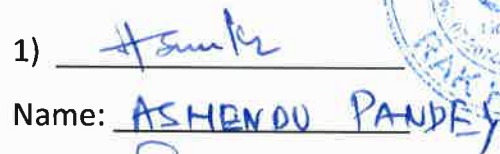 1)
Name: ASHENDU PANDEY
RAK